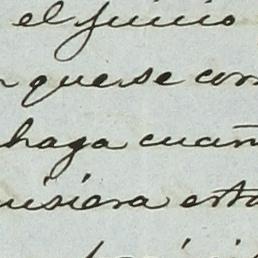 el juicio
que se con
haga cuan
uisiera esta